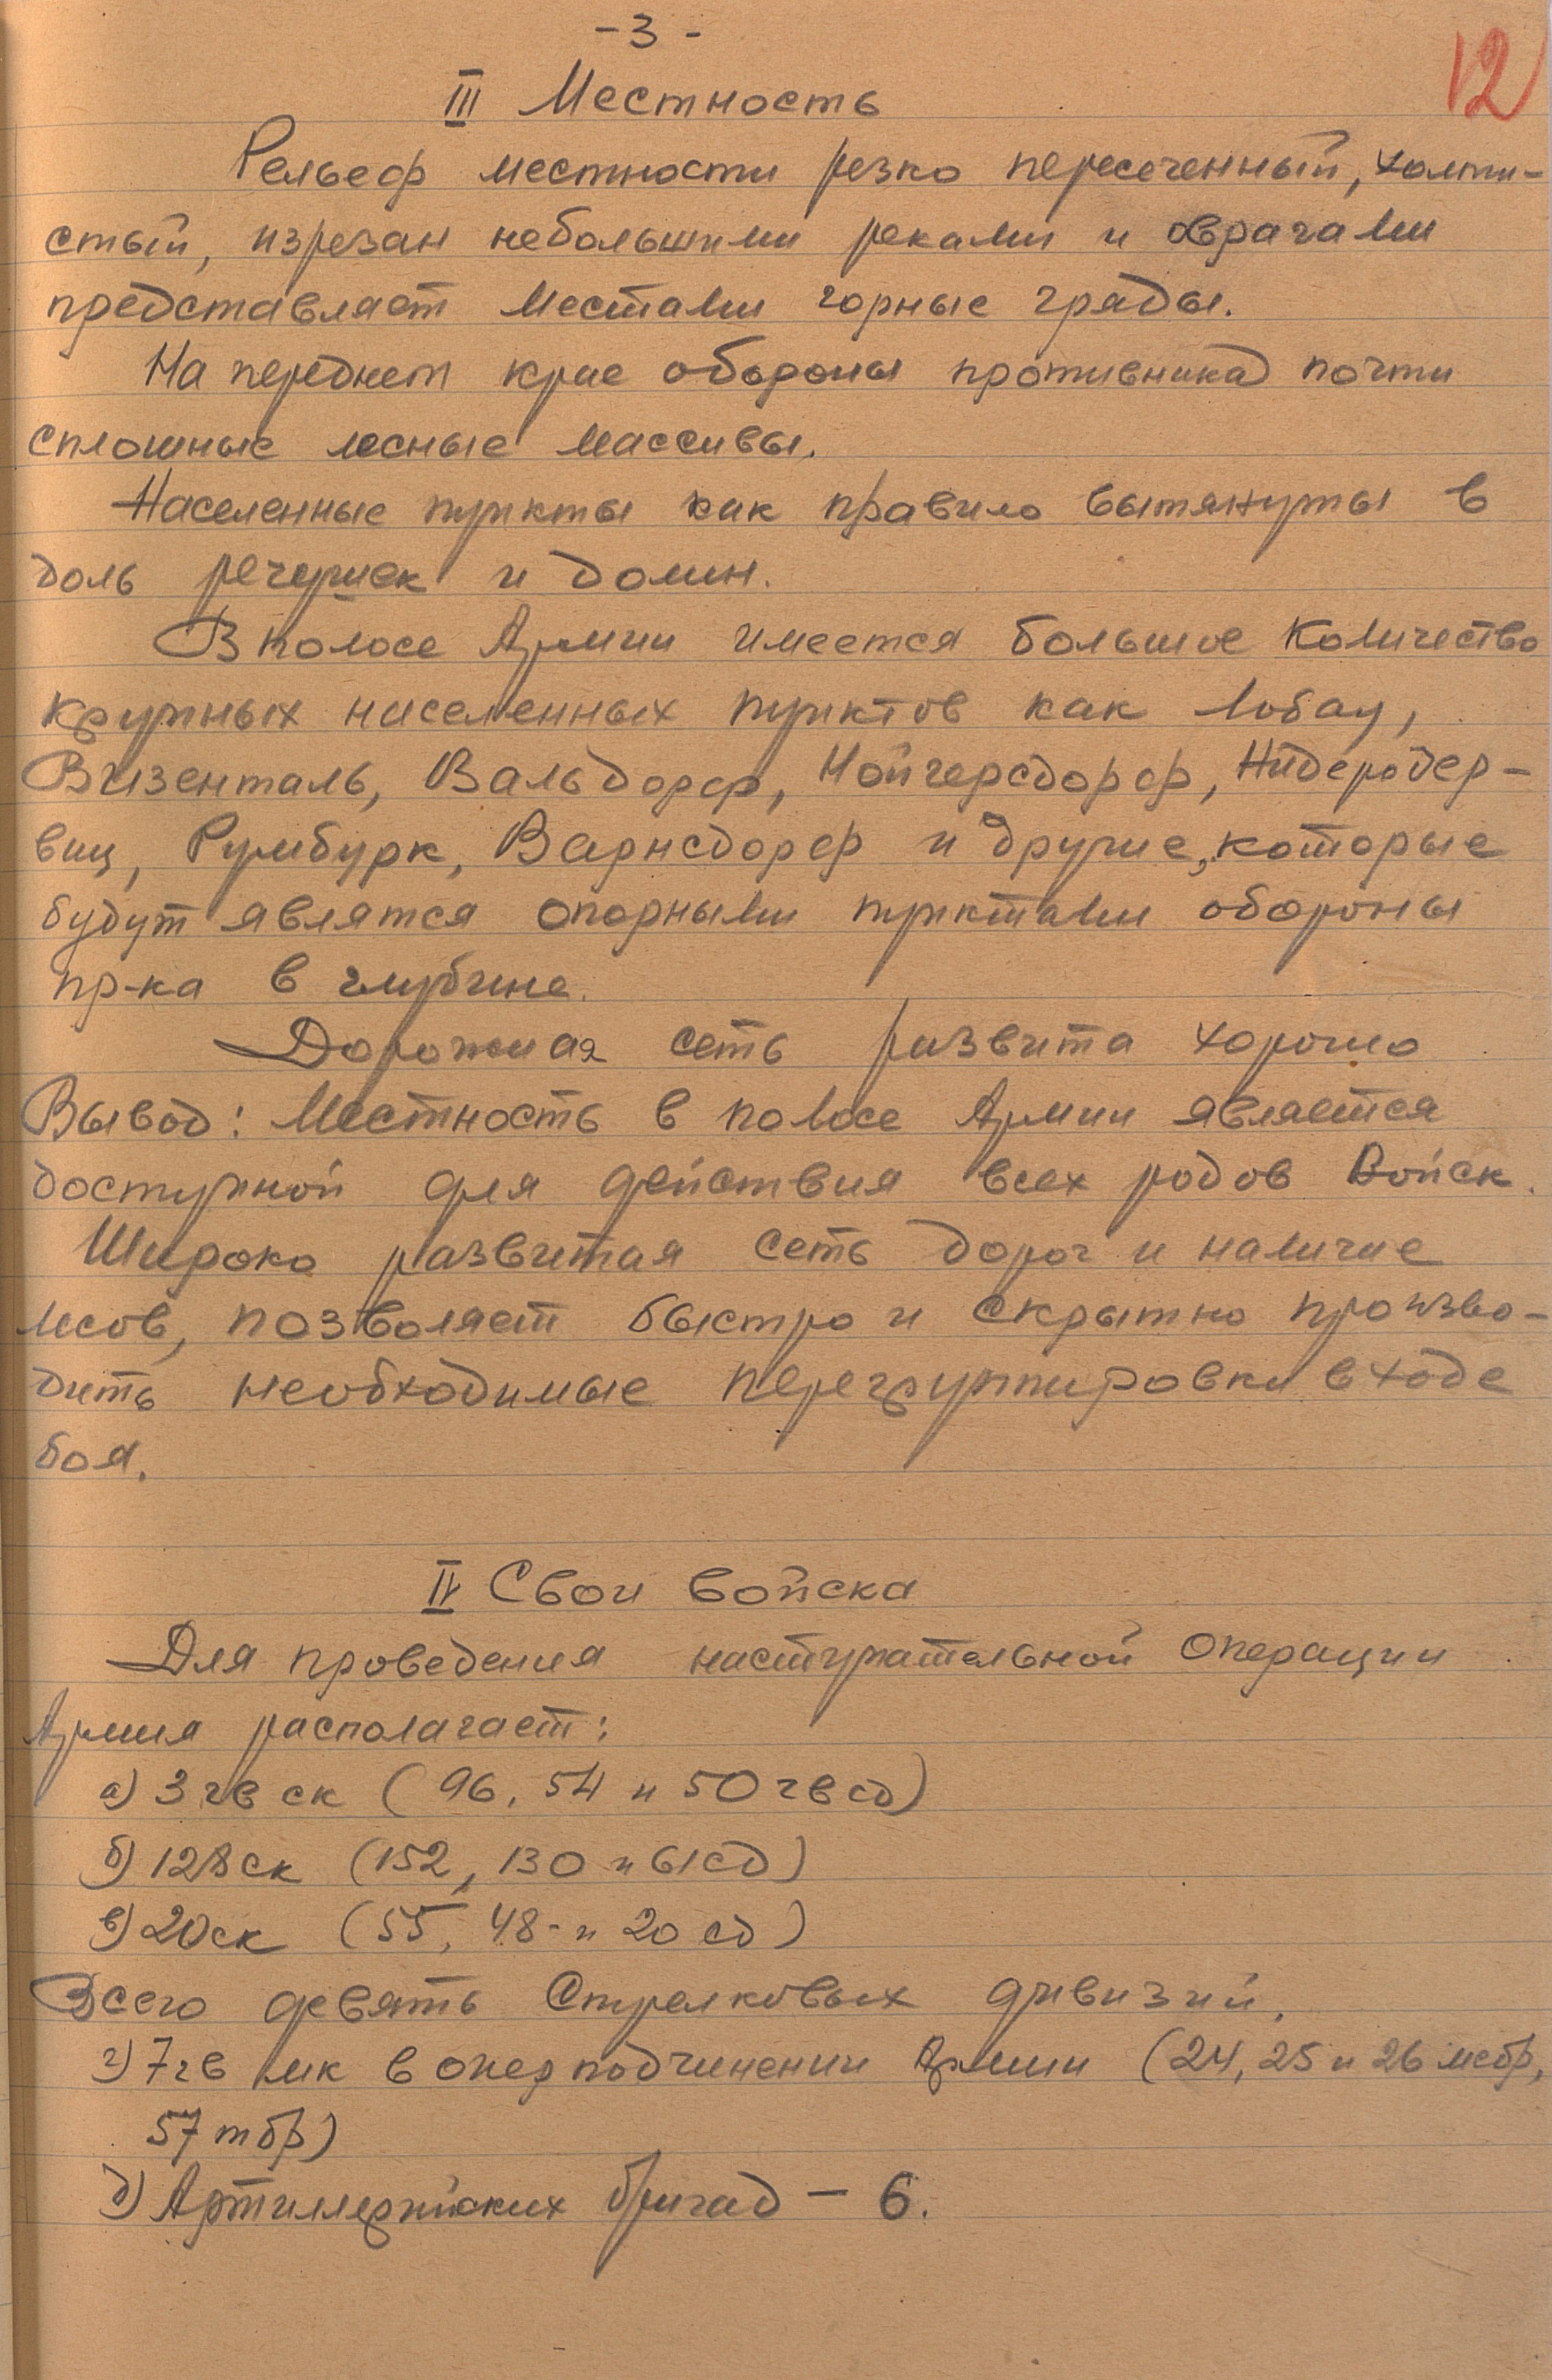 - 3 -
12
III Местность
Рельеф местности резко пересеченный, холми-
стый, изрезан небольшими реками и оврагами
представляет местами горные гряды.
На переднем крае обороны противника почти
сплошные лесные массивы.
Населенные пункты как правило вытянуты в
доль речушек и долин.
В полосе Армии имеется большое количество
крупных населенных пунктов как Лобау,
Визенталь, Вальдорф, Нойгерсдорф, Нидеродер-
виц, Румбурк, Варнсдорф и другие, которые
будут являтся опорными пунктами обороны
пр-ка в глубине.
Дорожная сеть развита хорошо
Вывод: Местность в полосе Армии является
доступной для действия всех родов Войск.
Широко развитая сеть дорог и наличие
лесов, позволяет быстро и скрытно произво-
дить необходимые перегруппировки в ходе
боя.
IV Свои войска
Для проведения наступательной операции
Армия располагает:
а) 3 гв ск (96, 54 и 50 гв сд)
б) 128 ск (152, 130 и 61 сд)
в) 20 ск (55, 48 - и 20 сд)
Всего девять Стрелковых дивизий.
г) 7 гв мк в опер подчинении Армии (24, 25 и 26 мсбр,
57 тбр)
д) Артиллерийских бригад - 6.